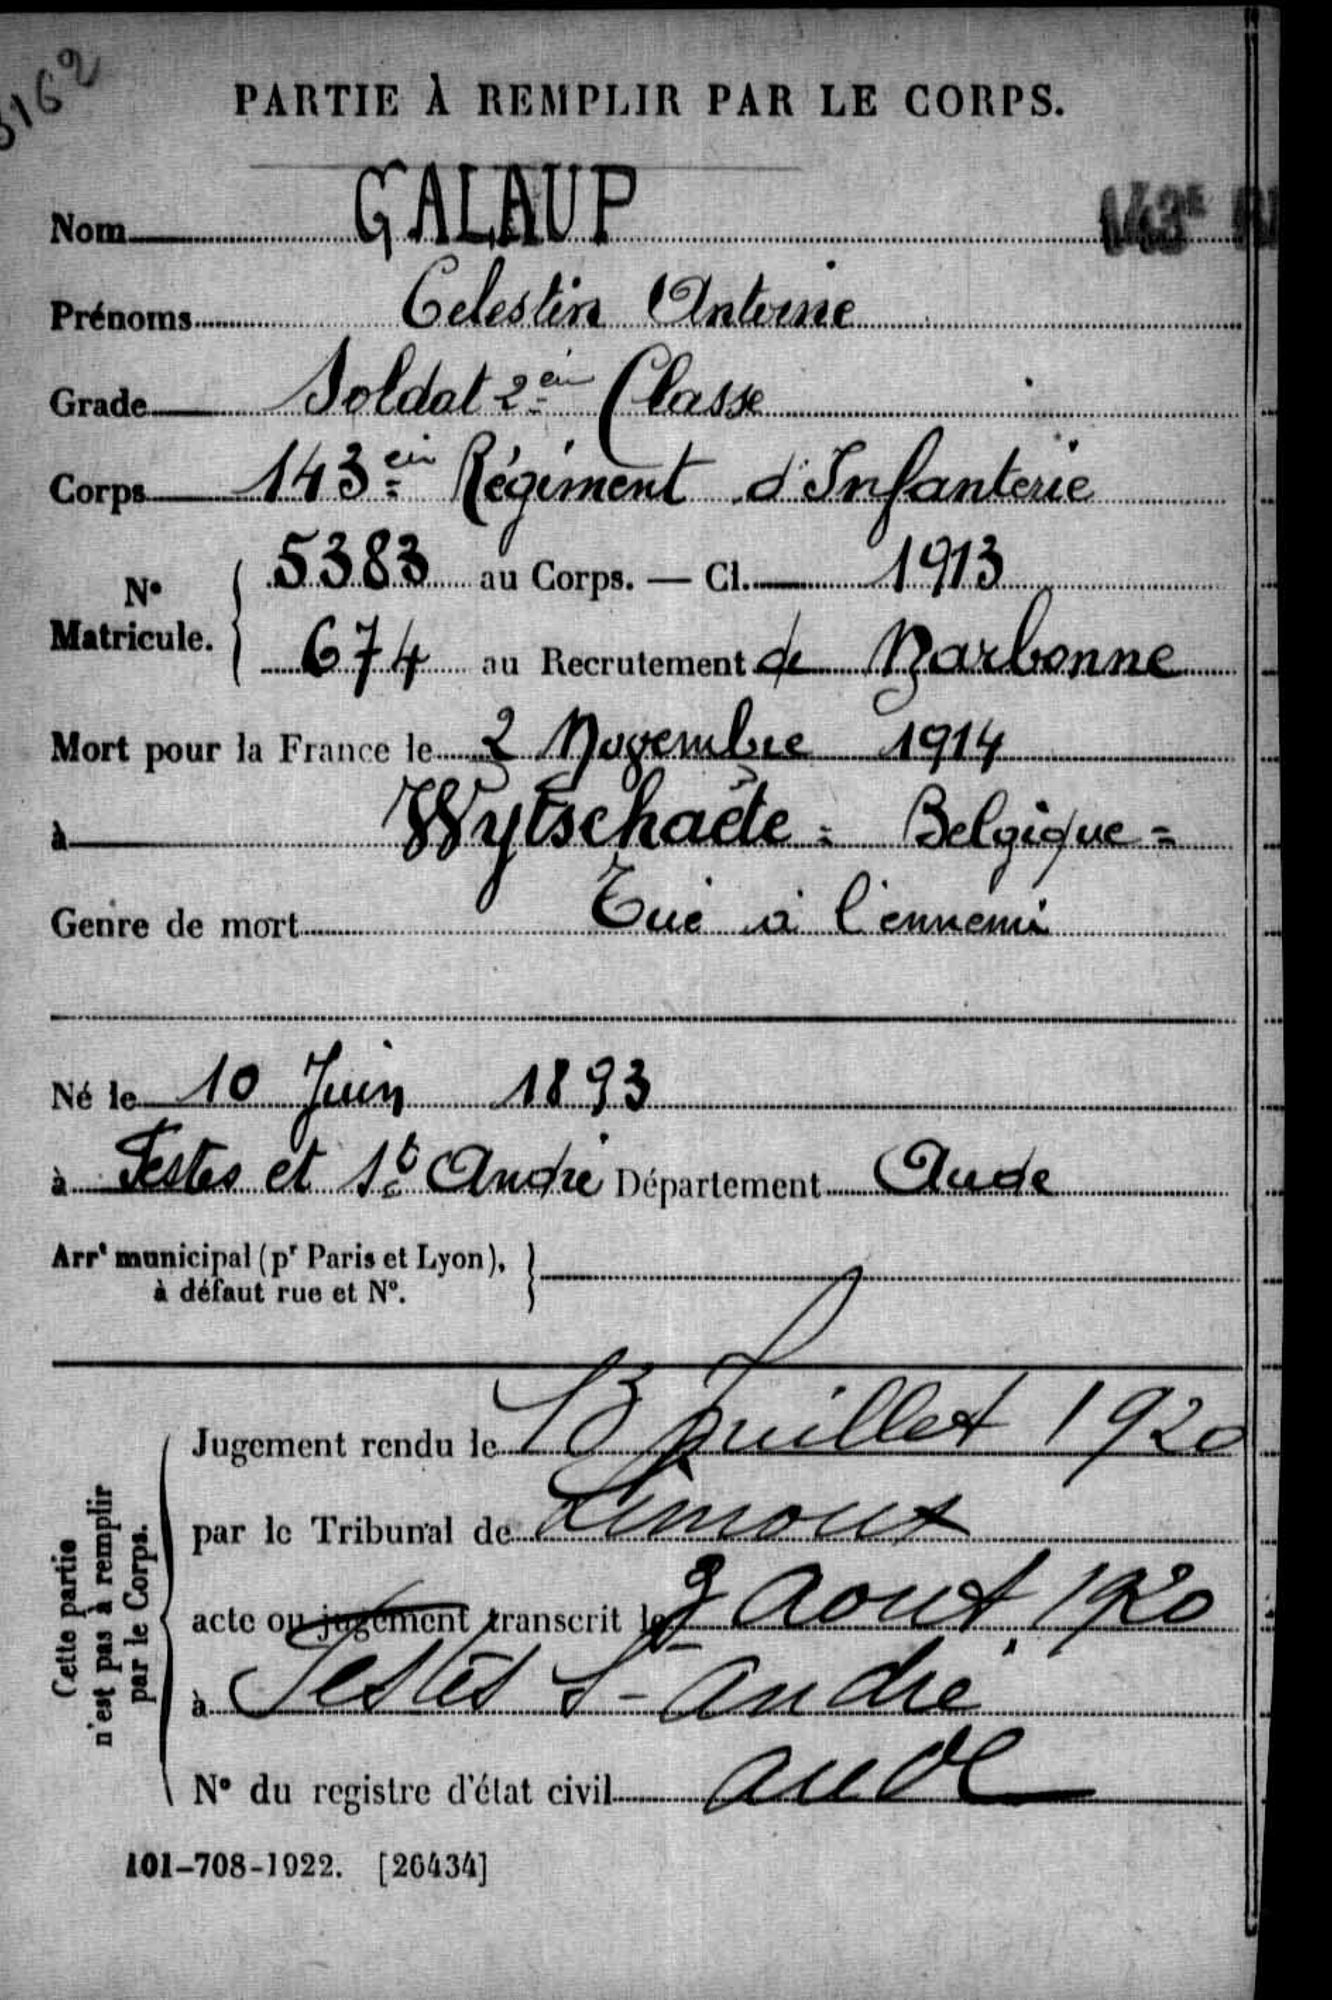 3162
PARTIE À REMPLIR PAR LE CORPS.
Nom GALAUP 143E RI
Prénoms Celestin Antoine
Grade Soldat 2èm Classe
Corps 143èm Régiment d'Infanterie
N° Matricule. 5383 au Corps. — Cl. 1913
674 au Recrutement de Narbonne
Mort pour la France le 2 Novembre 1914
à Wytschaëte = Belgique =
Genre de mort Tué à l'ennemi
Né le 10 Juin 1893
à Festes et St André Département Aude
Arrt municipal (pr Paris et Lyon),
à défaut rue et N°.
Cette partie
n'est pas à remplir
par le Corps.
Jugement rendu le 13 Juillet 1920
par le Tribunal de Limoux
acte ou jugement transcrit le Août 1920
à Festes St André
N° du registre d'état civil Aude
101-708-1922. [26434]